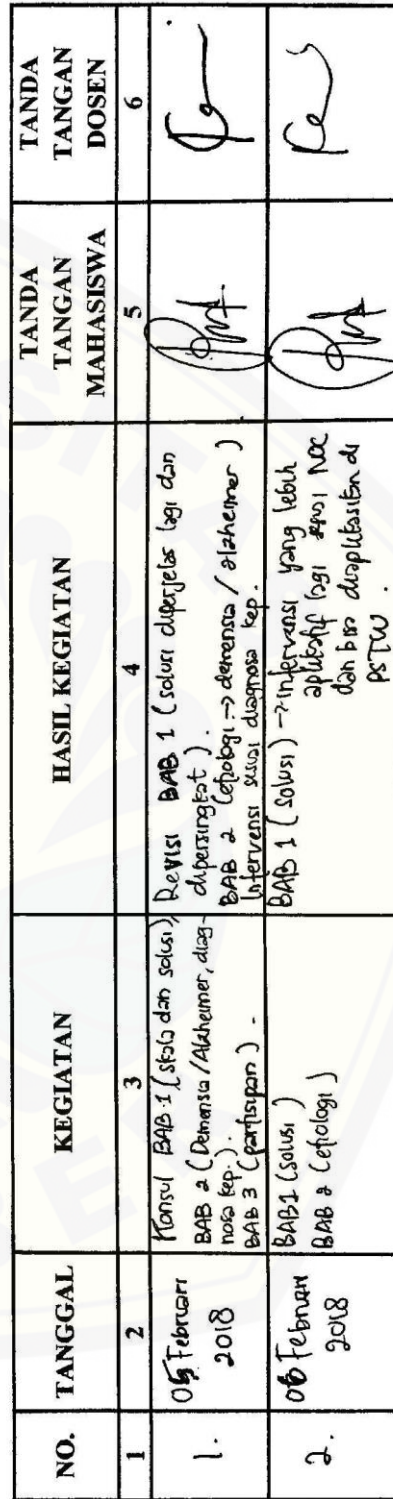 NO.
TANGGAL
KEGIATAN
HASIL KEGIATAN
TANDA
TANGAN
MAHASISWA
TANDA
TANGAN
DOSEN
1
2
3
4
5
6
1.
05 Februari
2018
Konsul BAB 1 (skala dan solusi),
BAB 2 (Demensia/Alzheimer, diag-
nosa kep.).
BAB 3 (partisipan).
Revisi BAB 1 (solusi diperjelas lagi dan
dipersingkat).
BAB 2 (etiologi → demensia / alzheimer)
Intervensi sesuai diagnosa kep.
2.
06 Februari
2018
BAB 1 (solusi)
BAB 2 (etiologi)
BAB 1 (solusi) → intervensi yang lebih
aplikatif lagi sesuai NOC
dan bisa diaplikasikan di
PSTW.